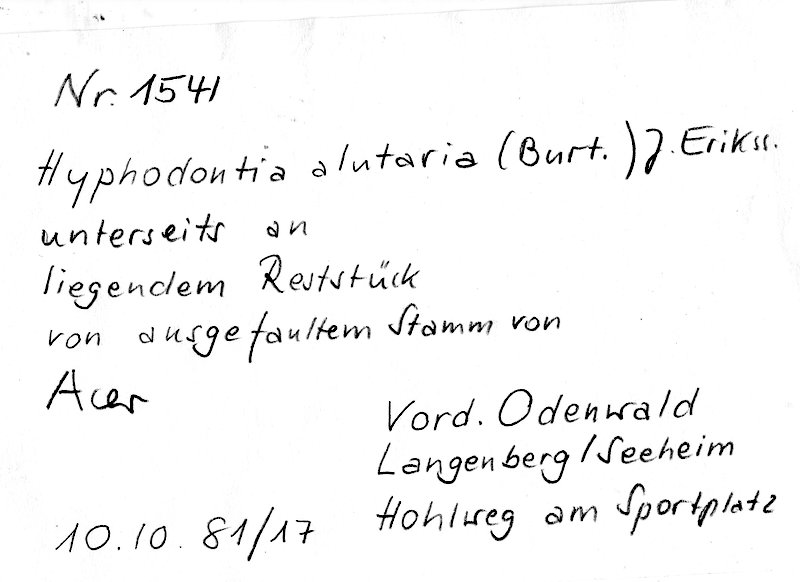 Nr. 1541
Hyphodontia alutaria (Burt.) J. Erikss.
unterseits an
liegendem Reststück
von ausgefaultem Stamm von
Acer
Vord. Odenwald
Langenberg/Seeheim
Hohlweg am Sportplatz
10.10.81/17